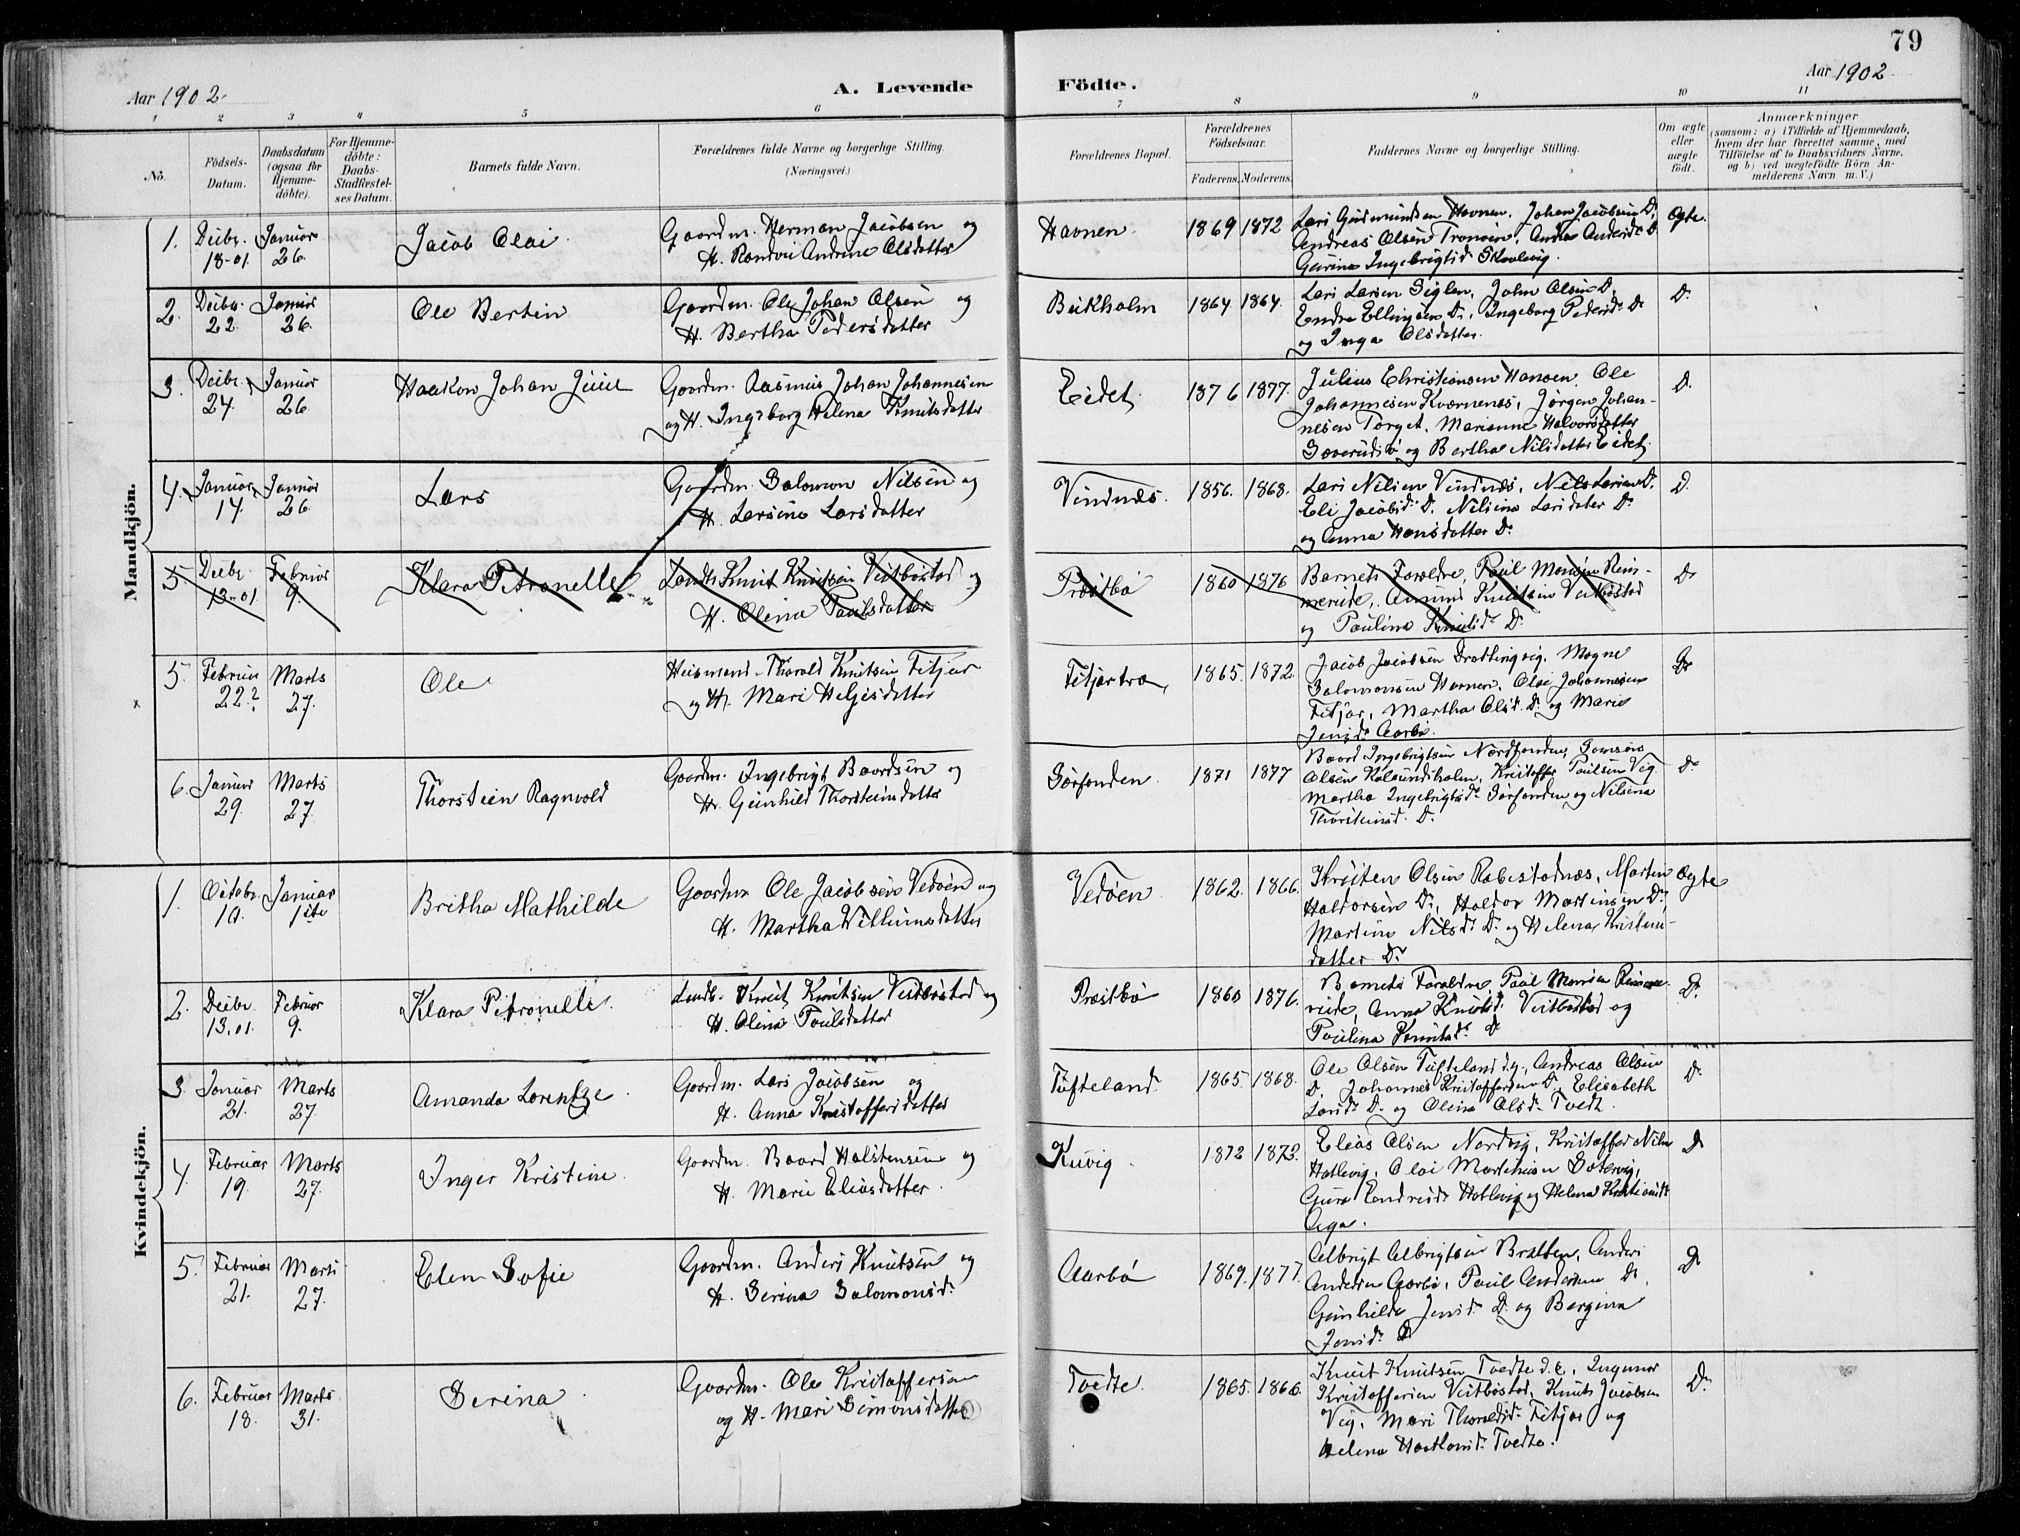 79
Aar 1902.
A. Levende
Födte.
Aar 1902
1 2 3 4 5 6 7 8 9 10 11
No.
Födsels-
Datum.
Daabsdatum
(ogsaa for
Hjemme-
døbte).
For Hjemme-
døbte:
Daabs-
Stadfæstel-
ses Datum.
Barnets fulde Navn.
Forældrenes fulde Navne og borgerlige Stilling.
(Næringsvei.)
Forældrenes Bopæl.
Forældrenes
Fødselsaar.
Faderens. Moderens.
Faddernes Navne og borgerlige Stilling.
Om ægte
eller
uægte
født.
Anmærkninger
(saasom: a) i Tilfælde af Hjemmedaab,
hvem der har forrettet samme, med
Tilföielse af to Daabsvidners Navne,
og b) ved uegtefödte Börn An-
melderens Navn m. V.)
Mandkjön.
1. Decbr. 18-01 Januar 26. Jacob Olai
Gaardm. Herman Jacobsen og
H. Andrine Olsdatter
Havnen. 1869 1872
Lars Gudmundsen Havnen, Johan Jacobsen D.
Andreas Olsen
Ingebrigtsd.
Ægte.
2. Decbr. 22. Januar 26. Ole Bertin
Gaardm. Ole Johan Olsen og
H. Bertha Pedersdatter
Bukholm 1864 1864.
Lars Larsen Siglen, John Olsen D.
Endre Ellingsen D., Ingeborg Pedersd. D.
og Inga Olsdatter.
D.
3. Decbr. 24. Januar 26. Haakon Johan Juul
Gaardm. Rasmus Johan Johannesen
og H. Ingeborg Helena Knutsdatter
Eidet 1876 1877.
Julius Christiansen Hansen, Ole
Johannesen Kværnenes, Jørgen Johan-
nesen Torget, Marianne Halvorsdatter
og Bertha Nilsdatter Eidet.
D.
4. Januar 14. Januar 26. Lars
Gaardm. Salomon Nilsen og
H. Larsine Larsdatter
Vindnæs. 1856. 1868.
Lars Nilsen Vindnæs, Nils Larsen D.
Eli Jacobsd. D. Nilsine Larsdatter D.
og Anna Hansdatter D.
D.
5 Decbr. 13-01 Februar 9. Klara Petronelle
Knut Knutsen Vestbøstad og
H. Olina Paulsdatter
Præstbø 1860 1876
Barnets Forældre, Paul Monsen
Knutsen Vestbøstad
og Paulina Knutsd. D.
D.
5. Februar 22.? Marts 27. Ole
Husmand Thorvald Knutsen Fitjar
og H. Mari Helgesdatter
1865. 1872.
Jacob Jacobsen Drotlingvig, Mogne
Salomonsen Havnen, Olai Johannesen
Fitjar, Martha Olsd. D. og Marie
Jensd. Aarbø.
D.
6. Januar 29. Marts 27. Thorstein Ragnvald
Gaardm. Ingebrigt Baardsen og
H. Gunhild Thorsteinsdatter
Sørfonden. 1871 1877
Baard Ingebrigtsen Nordfonden, Samson
Olsen Kolsundholm, Kristoffer Paulsen Vig
Martha Ingebrigtsd. Sørfonden og Nilsina
Thorsteinsd. D.
D.
Kvindekjön.
1. Octobr. 10. Januar 1ste Britha Mathilde
Gaardm. Ole Jacobsen Vedøen og
H. Martha Villumsdatter
Vedøen 1862. 1866.
Kristen Olsen Rabestadnæs, Martin
Haldorsen D., Haldor Martinsen D.
Martine Nilsd. D. og Helena Kristens-
datter D.
Ægte
2. Decbr. 13.01. Februar 9. Klara Petronelle.
Knut Knutsen Vestbøstad og
H. Olina Poulsdatter
Præstbø 1860 1876.
Barnets Forældre, Paul Monsen
Anna Knutsd. Vestbøstad og
Paulina Knutsd. D.
D.
3. Januar 21. Marts 27 Amanda Lorentze
Gaardm. Lars Jacobsen og
H. Anna Kristoffersdatter
Tufteland 1865 1868.
Ole Olsen Tufteland d.y., Andreas Olsen
D. Johannes Kristoffersen D. Elisabeth
Larsd. D. og Olina Olsd. Tvedt.
D.
4. Februar 19. Marts 27. Inger Kristine
Gaardm. Baard Halstensen og
H. Marie Eliasdatter
1872 1873.
Elias Olsen Nordvig, Kristoffer Nilsen
Hatlevig, Olai Mathisen
Guro Endresd. Hatlevig og Helena Kristiansd.
Aga.
D.
5. Februar 21. Marts 27. Elen Sofie
Gaardm. Anders Knutsen og
H. Serina Salomonsd.
Aarbø 1869. 1877.
Albrigt Albrigtsen Bratten, Anders
Andersen Aarbø, Paul Andersen D.
Gunhilde Jensd. D. og Bergina
Jensd. D.
D.
6. Februar 18. Marts 31. Serina
Gaardm. Ole Kristoffersen
og H. Mari Simonsdatter
Tvedte. 1865. 1866.
Knut Knutsen Tvedte d.e., Ingmar
Kristoffersen Vestbøstad, Knut Jacobsen
Vig, Mari Thorvaldsd. Fitjar og
Helena Tvedte.
D.